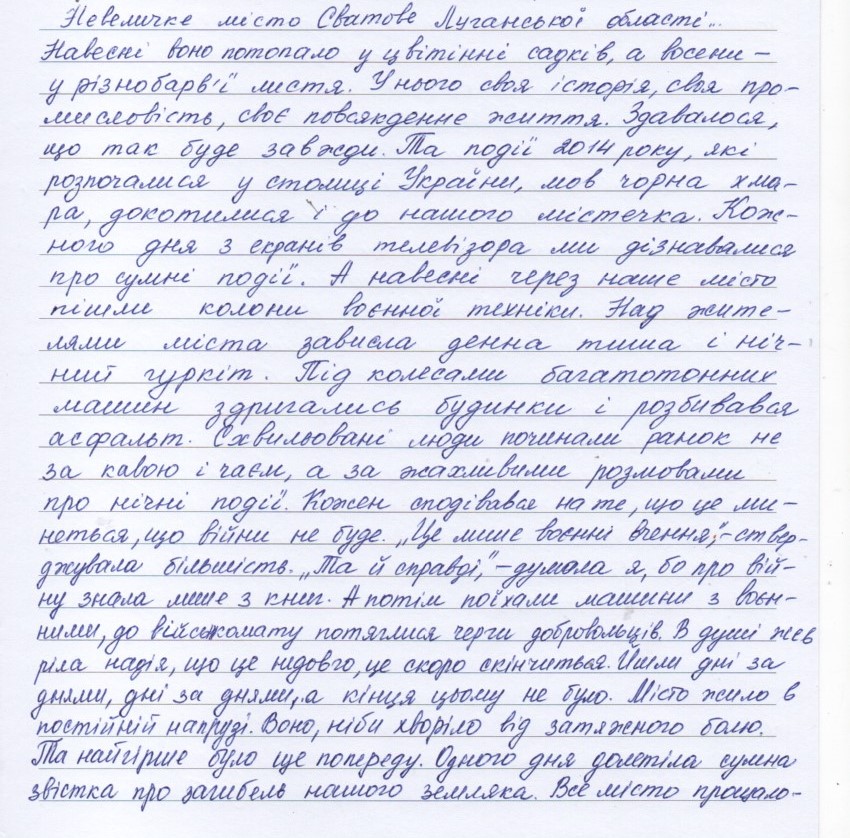 Невеличке місто Сватове Луганської області...
Навесні воно потопало у цвітінні садків, а восени –
у різнобарв'ї листя. У нього своя історія, своя про-
мисловість, своє повсякденне життя. Здавалося,
що так буде завжди. Та події 2014 року, які
розпочалися у столиці України, мов чорна хма-
ра, докотилися і до нашого містечка. Кож-
ного дня з екранів телевізора ми дізнавалися
про сумні події. А навесні через наше місто
пішли колони воєнної техніки. Над жите-
лями міста зависла денна тиша і ніч-
ний гуркіт. Під колесами багатотонних
машин здригались будинки і розбивався
асфальт. Схвильовані люди починали ранок не
за кавою і чаєм, а за жахливими розмовами
про нічні події. Кожен сподівався на те, що це ми-
неться, що війни не буде. „Це лише воєнні вчення", – ствер-
джувала більшість. „Та й справді," – думала я, бо про вій-
ну знала лише з книг. А потім поїхали машини з воєн-
ними, до військомату потяглися черги добровольців. В душі жев
ріла надія, що це недовго, це скоро скінчиться. Йшли дні за
днями, дні за днями, а кінця цьому не було. Місто жило в
постійній напрузі. Воно, ніби хворіло від затяжного болю.
Та найгірше було ще попереду. Одного дня долетіла сумна
звістка про загибель нашого земляка. Все місто прощало-